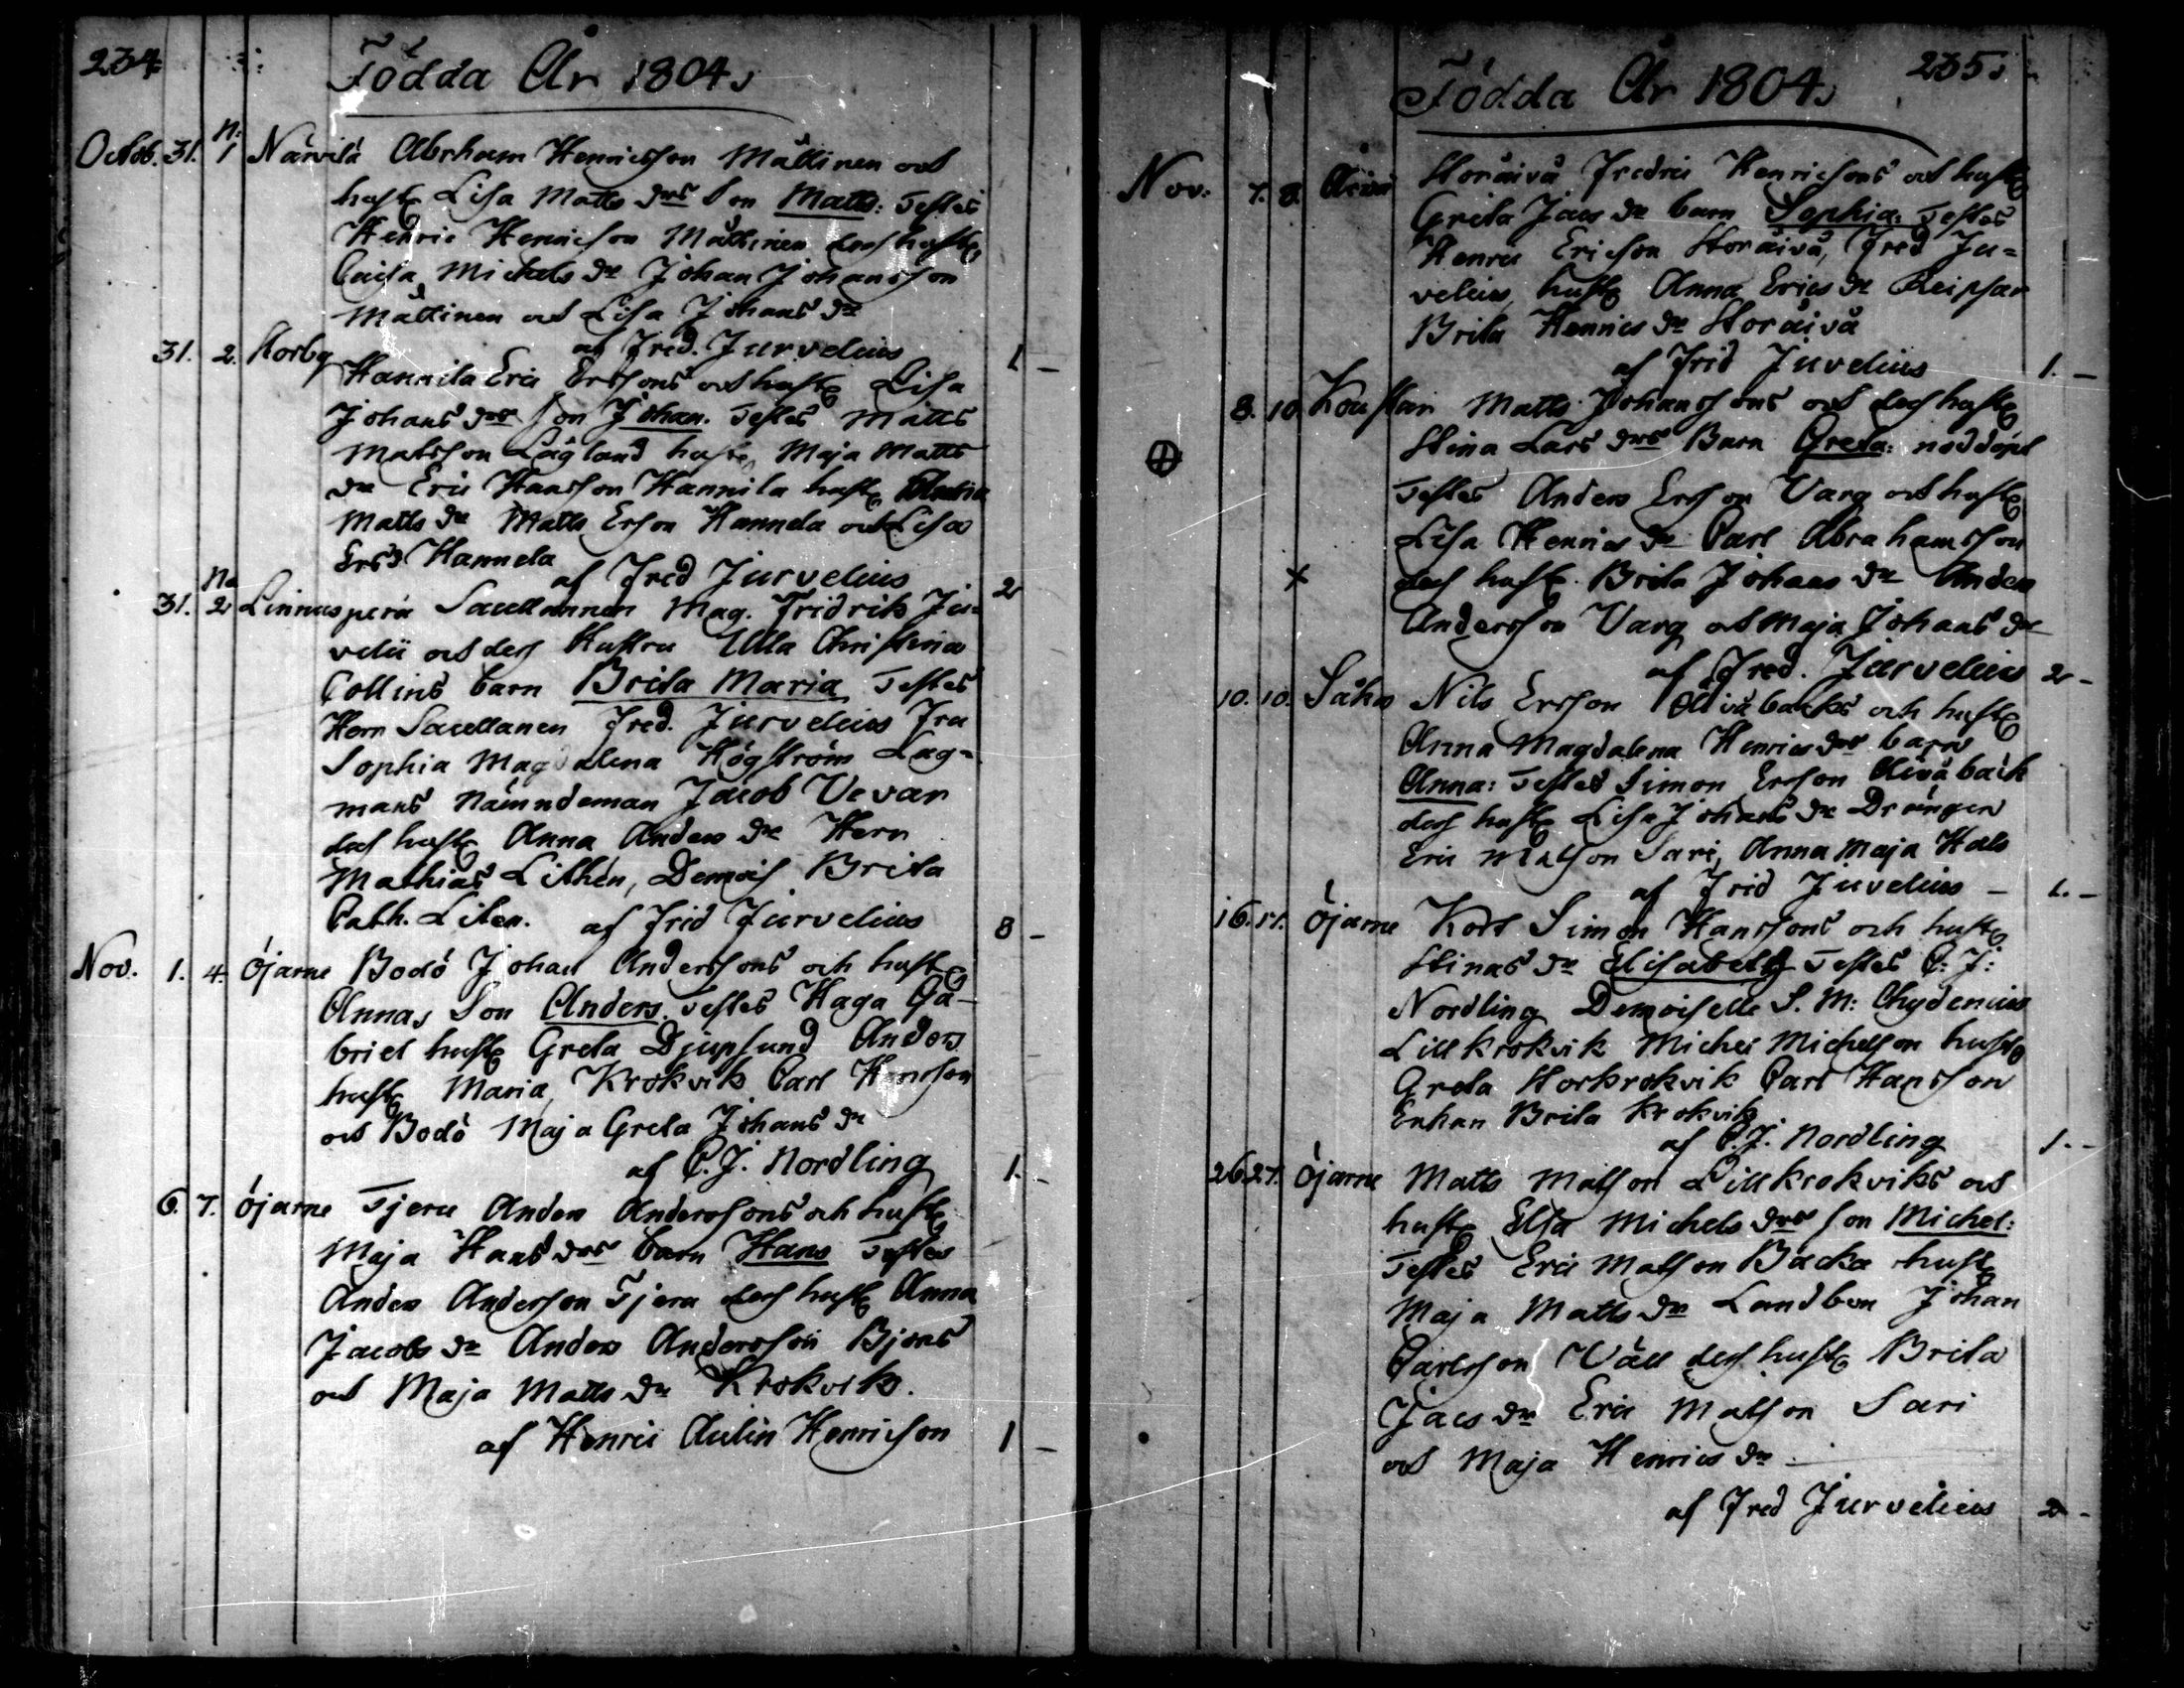 234.
Födda År 1804.
Octob. 31. N: 1 Närvilä Abrham Henricsson Mättinen och
hust Lisa Matts drs Son Matts: Testes
Hendric Henricson Mättinen des hust
Caisa Michels dr Johan Johansson
Mättinen och Lisa Johans dr
af Fred. Jurvelius 1 –
31. 2. Storby Hannila Eric Ersons och hust Lisa
Johans drs son Johan. Testes Matts
Matsson Lågland hust Maja Matts
dr Eric Hansson Hannila hust
Matts dr Matts Erson Hannela och Lisa
Ers d Hannela
af Fred Jurvelius 2
31. No 2 Linnusperä Sacellannen Mag. Fridrik Ju-
velii och des Hustru Ulla Christina
Collins barn Brita Maria Testes
Herr Sacellanen Fred. Jurvelius Fru
Sophia Magdalena Högström Lag-
mans Nämndeman Jacob Vevar
des hust Anna Anders dr Herr
Mathias Lithén, Demois Brita
Cath. Liten. af Frid Jurvelius 8 –
Nov. 1. 4. Öjarne Bodö Johan Anderssons och hust
Annas Son Anders. Testes Haga Ga-
briel hust Greta Djupsund Anders
hust Maria, Krokvik Carl Henrson
och Bodö Maja Greta Johans dr
af C. J. Nordling 1. –
6. 7. Öjarne Tjeru Anders Anderssons och hust
Maja Hans drs barn Hans Testes
Anders Anderson Tjeru des hust Anna
Jacobs dr Anders Andersson Bjons
och Maja Matts dr Krokvik.
af Henric Aulin Henricson 1 –
235.
Födda År 1804.
Nov: 7. 8. Åivu Storåivå Fredric Henricsons och hust
Greta Jacs dr barn Sophia. Testes
Henric Ericson Storåivå, Fred Ju=
velius, hust Anna Erics dr Reipsar
Brita Henrics dr Storåivå
af Frid Juvelius 1. –
8. 10. Koustar Matts Johanssons och des hust
Stina Lars drs Barn Greta: nöddöpt
Testes Anders Ersson Varg och hust
Lisa Henrics dr Carl Abrahamsson
des hust. Brita Johans dr Anders
Andersson Varg och Maja Johans dr
af Fred. Jurvelius 2 –
10. 10. Såka Nils Ersson Åivåbacks och hust
Anna Magdalena Henrics drs barn
Anna: Testes Simon Ersson Åivåback
des hust Lisa Johans dr Drängen
Eric Matson Sari, Anna Maja Hals
af Frid Juvelius – 1. –
16. 17. Öjarne Kors Simon Hanssons och hust
Stinas dr Elisabeth Testes C: J:
Nordling Demoiselle S. M: Chydenius
Lillkrokvik Michel Michelson hust
Greta Storkrokvik Carl Hansson
Enkan Brita Krokvik
af C. J. Nordling 1. –
26. 27. Öjarne Matts Matson Lillkrokviks och
hust Elsa Michels drs son Michel:
Testes Eric Matson Backa hust
Maja Matts dr Landbon Johan
Carlsson Väll des hust Brita
Jacs dr Eric Matson Sari
och Maja Henrics dr
af Fred Jurvelius 2 –